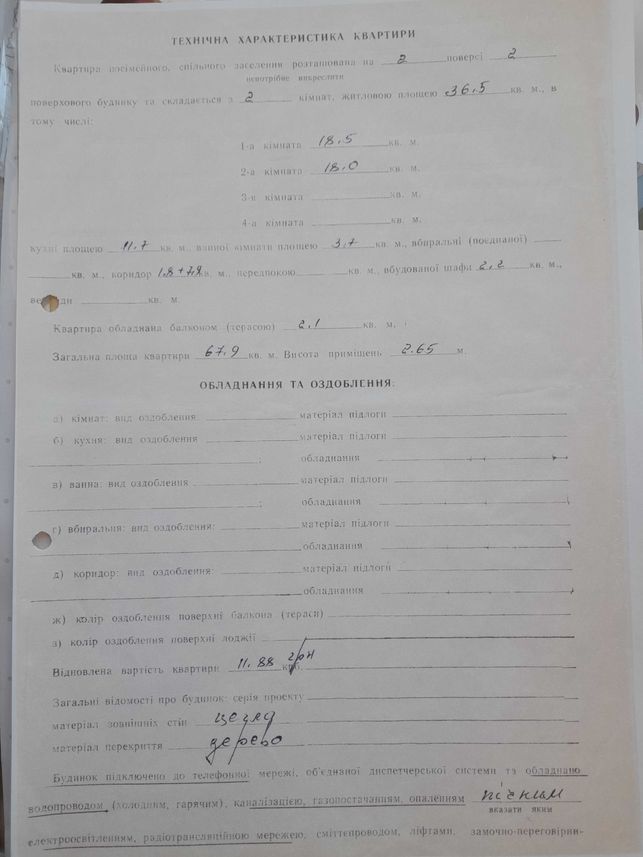 ТЕХНІЧНА ХАРАКТЕРИСТИКА КВАРТИРИ
Квартира посімейного, спільного заселення розташована на 2 поверсі 2
непотрібне викреслити
поверхового будинку та складається з 2 кімнат, житловою площею 36.5 кв. м., в
тому числі:
1-а кімната 18.5 кв. м.
2-а кімната 18.0 кв. м.
3-я кімната кв. м.
4-а кімната кв. м.
кухні площею 11.7 кв. м., ванної кімнати площею 3.7 кв. м., вбиральні (поєднаної)
кв. м., коридор 1.8+ кв. м., передпокою кв. м., вбудованої шафи 2.2 кв. м.,
кв. м.
Квартира обладнана балконом (терасою) 2.1 кв. м,
Загальна площа квартири 67.9 кв. м. Висота приміщень 2.65 м.
ОБЛАДНАННЯ ТА ОЗДОБЛЕННЯ:
а) кімнат: вид оздоблення: матеріал підлоги
б) кухня: вид оздоблення матеріал підлоги
; обладнання
в) ванна: вид оздоблення матеріал підлоги
; обладнання
г) вбиральня: вид оздоблення: матеріал підлоги
обладнання
д) коридор: вид оздоблення: матеріал підлоги
обладнання
ж) колір оздоблення поверхні балкона (тераси)
з) колір оздоблення поверхні лоджії
Відновлена вартість квартири 11.88 грн
Загальні відомості про будинок: серія проекту
матеріал зовнішніх стін цегла
матеріал перекриття дерево
Будинок підключено до телефонної мережі, об'єднаної диспетчерської системи та обладнано
водопроводом (холодним, гарячим), каналізацією, газопостачанням, опаленням пічним
вказати яким
електроосвітленням, радіотрансляційною мережею, сміттєпроводом, ліфтами, замочно-переговірни-